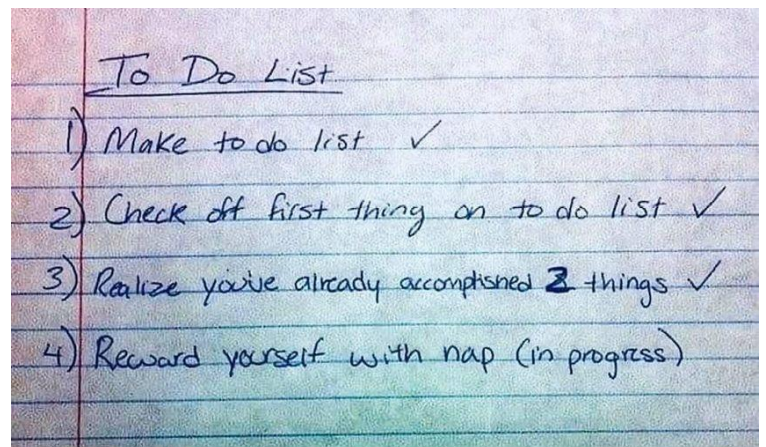 To Do List
1) Make to do list ✓
2) Check off first thing on to do list ✓
3) Realize you've already accomplished 2 things ✓
4) Reward yourself with nap (in progress)